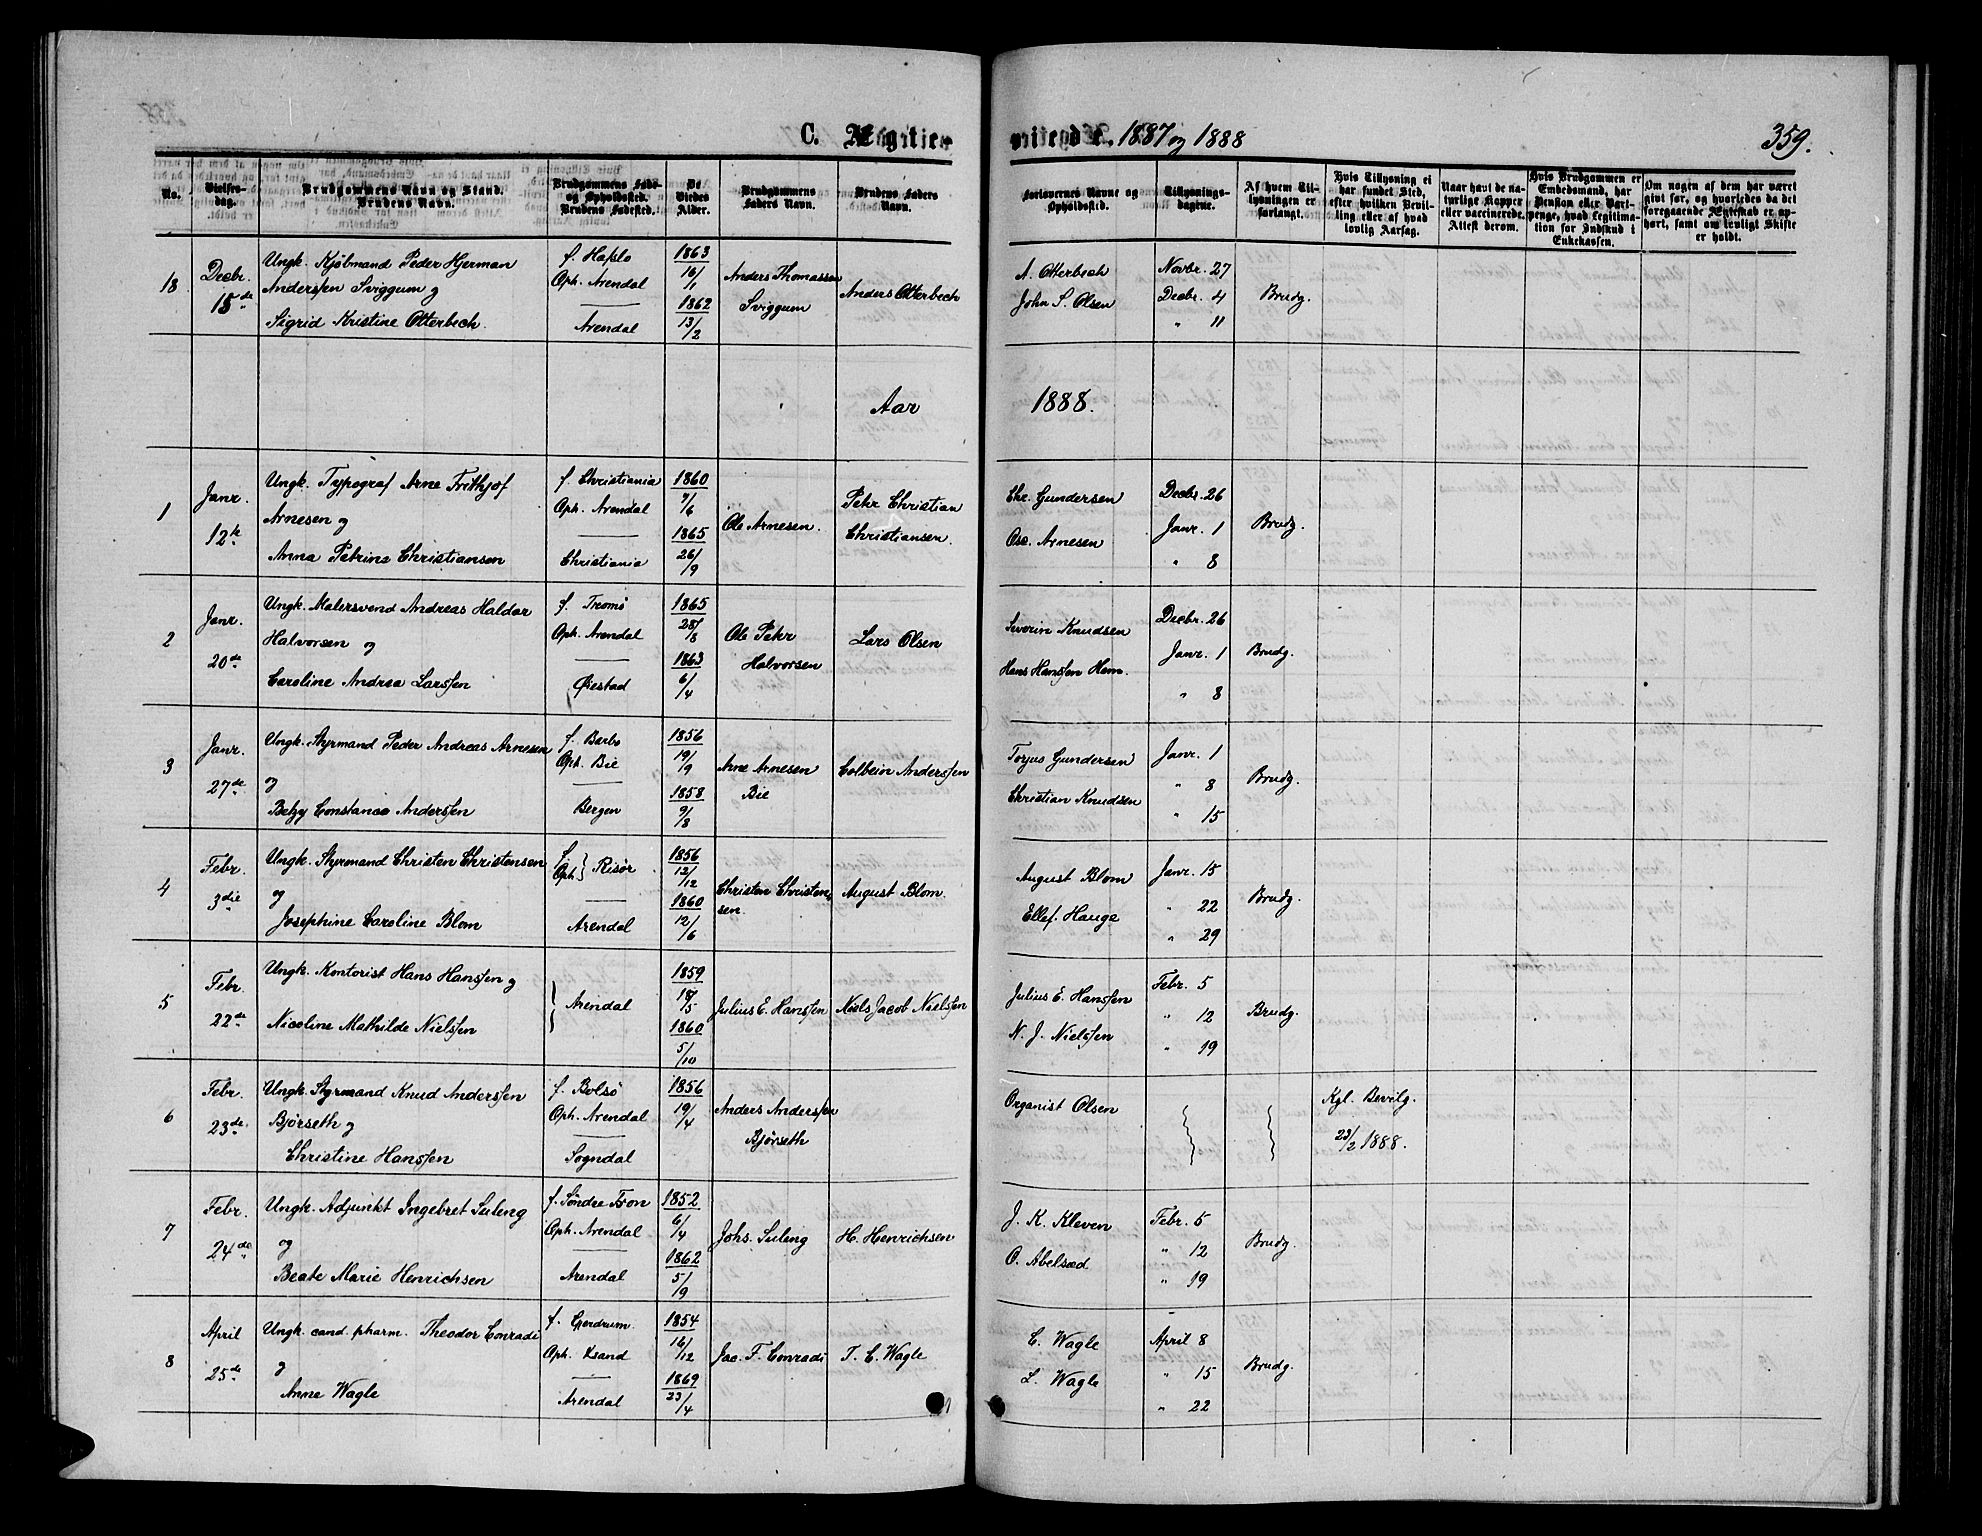 C. Ægtevi
viende. 1887 og 1888
359.
No.
Vielses-
dag.
Brudgommens Navn og Stand.
Brudens Navn.
Brudgommens Føde-
og Opholdssted.
Brudens Fødested.
De
Viedes
Alder.
Brudgommens
Faders Navn.
Brudens Faders
Navn.
Forlovernes Navne og
Opholdssted.
Tillysnings-
dagene.
Af hvem Til-
lysningen er
forlangt.
Hvis Tillysning ei
har fundet Sted,
efter hvilken Bevil-
ling eller af hvad
lovlig Aarsag.
Naar havt de na-
turlige Kopper
eller vaccinerede.
Attest derom.
Hvis Brudgommen er
Embedsmand, har
Pension eller Vart-
penge, hvad Legitima-
tion for Indskud i
Enkekassen.
Om nogen af dem har været
gift før, og hvorledes da det
foregaaende Ægteskab er op-
hørt, samt om lovligt Skifte
er holdt.
18
Decbr.
15de
Ungk. Kjöbmand Peder Hjerman
Anderssen Sviggum og
Sigrid Kristine Otterbech.
f. Hafslo
Oph. Arendal
Arendal
1863
16/1
1862
13/2
Anders Thomassen
Sviggum
Anders Otterbech
A. Otterbech
John S. Olsen
Novbr. 27
Decbr. 4
" 11
Brudg.
Aar
1888.
1
Janr.
12te
Ungk. Typograf Arne Frithjof
Arnesen og
Anna Petrine Christiansen
f. Christiania
Oph. Arendal
Christiania
1860
9/6
1865
26/9
Ole Arnesen.
Peter Christian
Christiansen.
Chr. Gundersen
Osc. Arnesen
Decbr. 26
Janr. 1
" 8
Brudg.
2
Janr.
20de
Ungk. Malersvend Andreas Haldor
Halvorsen og
Caroline Andrea Larssen
f. Tromö
Oph. Arendal
Öiestad
1865
28/8
1863
6/4
Ole Peter
Halvorsen
Lars Olsen
Severin Knudsen
Hans Hanssen Hem.
Decbr. 26
Janr. 1
" 8
Brudg.
3
Janr.
27de
Ungk. Styrmand Peder Andreas Arnesen
og
Betzy Constance Anderssen
f. Barbo
Oph. Bie
Bergen
1856
19/9
1858
9/8
Arne Arnesen
Bie
Colbein Anderssen
Torjus Gundersen
Christian Knudsen
Janr. 1
" 8
" 15
Brudg.
4
Febr.
3die
Ungk. Styrmand Christen Christensen
og
Josephine Caroline Blom
f.
Oph. } Risør
Arendal
1856
12/12
1860
12/6
Christen Christen-
sen.
August Blom.
August Blom
Ellef. Hauge
Janr. 15
" 22
" 29
Brudg.
5
Febr.
22de
Ungk. Kontorist Hans Hanssen og
Nicoline Mathilde Nielssen
} Arendal
1859
18/5
1860
5/10
Julius E. Hanssen
Niels Jacob Nielssen
Julius E. Hanssen
N. J. Nielssen
Febr. 5
" 12
" 19
Brudg.
6
Febr.
23de
Ungk. Styrmand Knud Anderssen
Bjørseth og
Christine Hanssen
f. Bolsö
Oph. Arendal
Sogndal
1856
19/4
Anders Anderssen
Bjørseth
Organist Olsen
Kgl. Bevilg.
23/2 1888.
7
Febr.
24de
Ungk. Adjunkt Ingebret Suleng
og
Beate Marie Henrichsen
f. Söndre Fron
Oph. Arendal
Arendal
1852
6/4
1862
5/9
Johs. Suleng
H. Henrichsen
J. K. Kleven
O. Abelsæd
Febr. 5
" 12
" 19
Brudg.
8
April
25de
Ungk. cand. pharm. Theodor Conradi
og
Anne Wagle
f. Gjerdrum.
Oph. Ksand
Arendal
1854
16/12
1869
23/4
Jac. F. Conradi
T. C. Wagle
C. Wagle
L. Wagle
April 8
" 15
" 22
Brudg.